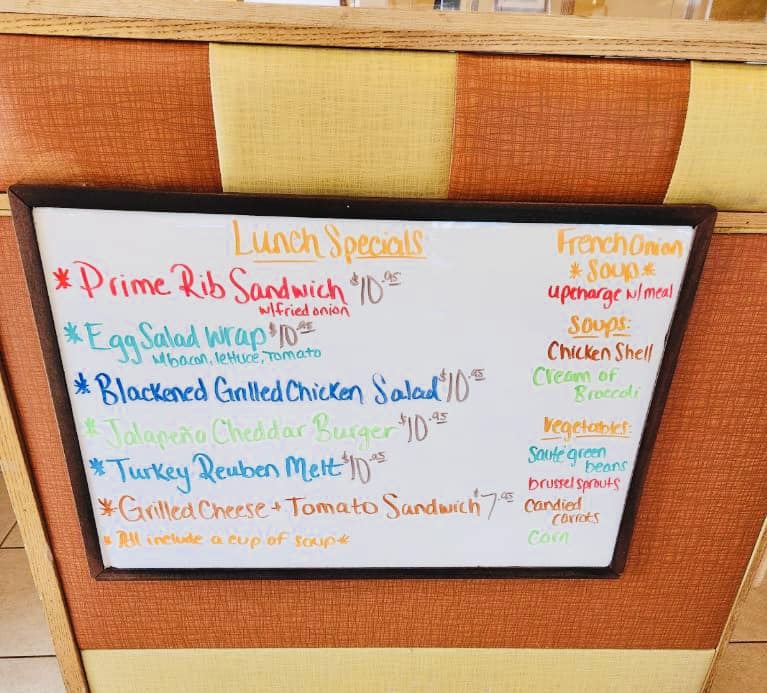 Lunch Specials
* Prime Rib Sandwich $10.95
w/fried onion
* Egg Salad Wrap $10.95
w/bacon, lettuce, Tomato
* Blackened Grilled Chicken Salad $10.95
* Jalapeño Cheddar Burger $10.95
* Turkey Reuben Melt $10.95
* Grilled Cheese + Tomato Sandwich $7.95
* All include a cup of soup *
French Onion
* Soup *
upcharge w/meal
Soups:
Chicken Shell
Cream of
Broccoli
Vegetables:
Sauté green
beans
brussel sprouts
Candied
carrots
Corn